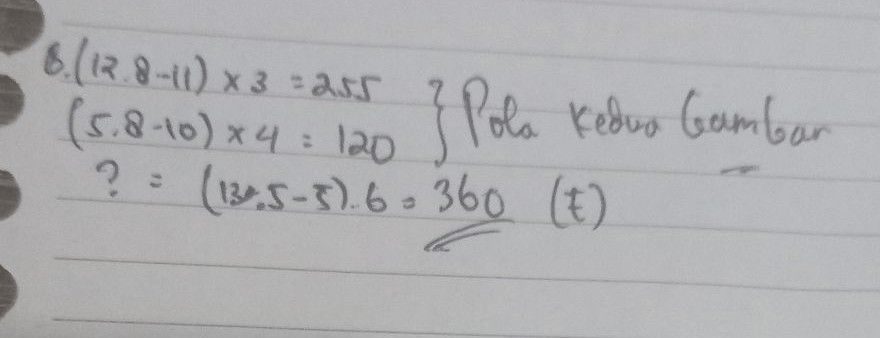 6. (12.8-11) × 3 = 255 } Pola Kedua Gambar
(5.8-10) × 4 = 120
? = (13.5-5).6 = 360 (E)